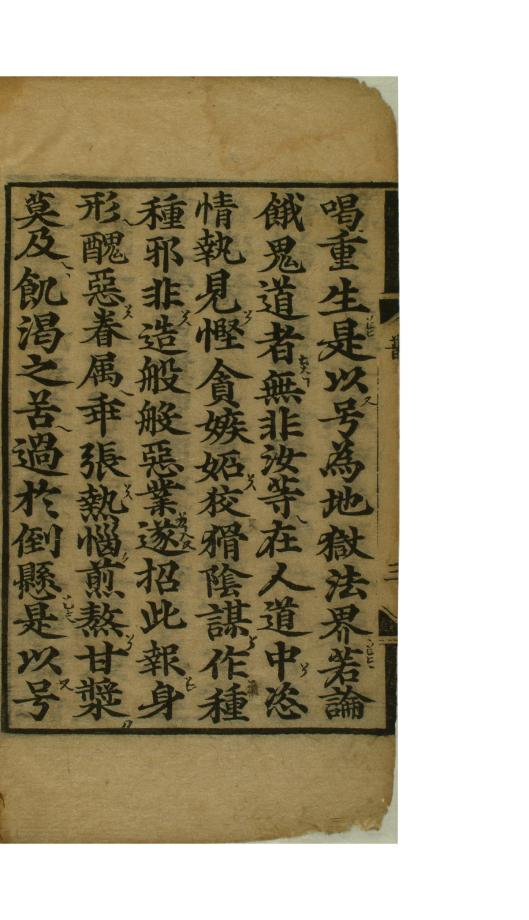 喝重生是以号為地獄法界若論
餓鬼道者無非汝等在人道中恣
情執見慳貪嫉妬狡猾陰謀作種
種邪非造般般惡業遂招此報身
形醜惡眷属乖張熱惱煎熬甘漿
莫及飢渴之苦過於倒懸是以号
三